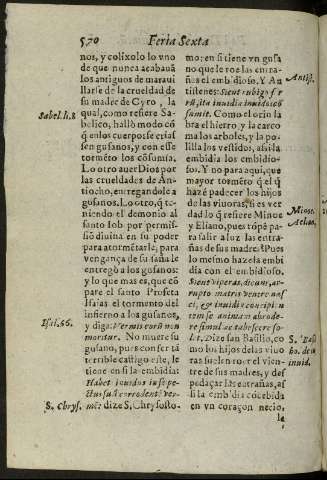 570 Feria Sexta
nos, y colixolo lo vno
de que nunca acabauā
los antiguos de marauillarse
de la crueldad de
su madre de Cyro, la
qual, como refiere Sabelico,
hallò modo cō
q̄ enlos cuerpos se criassen
gusanos, y con esse
tormēto los cōsumia.
Lo otro auer Dios por
las crueldades de Antiocho,
entregandole a
gusanos. Lo otro, q̄ teniendo
el demonio al
santo Iob por permission
diuina en su poder
para atormētarle, para
vengança de su saña le
entregò a los gusanos:
y lo que mas es, que cō
pare el santo Profeta
Isaias el tormento del
infierno a los gusanos,
y diga: Vermis eorū non
moritur. No muere su
gusano, pues con ser tā
terrible castigo este, le
tiene en si la embidia:
Habet inuidus inse pectus
suū corrodent. vermē:
dize S. Chrysosto-
Sabel.li.8
Isai.66.
S. Chrys.
mo: en si tiene vn gusano
que le roe las entrañas
el embidioso. Y Antistenes:
Sicut rubigo ferrū,
ita inuidia inuidos cōsumit.
Como el orin labra
el hierro y la carcoma
los arboles, y la polilla
los vestidos, assi la
embidia los embidiosos.
Y no para aqui, que
mayor tormēto q̄ el q̄
hazē padecer los hijos
de las viuoras, si es verdad
lo q̄ refiere Minoe
y Eliano, pues rōpē para
salir a luz las entrañas
de sus madres? Pues
lo mesmo haze la embidia
con el embidioso.
Sicut viperas, dicunt, arrupto
matris ventre nasci,
ita & inuidia concipientem
se animam abrodere
simul ac tabescere solet,
Dize san Basilio, como
los hijos de las viuoras
suelen roer el vientre
de sus madres, y despedaçar
las entrañas, assi
la embidia cōcebida
en vn coraçon necio,
le
Antist.
Minoe.
Aelian.
S. Basi
ho. de in
inuid.